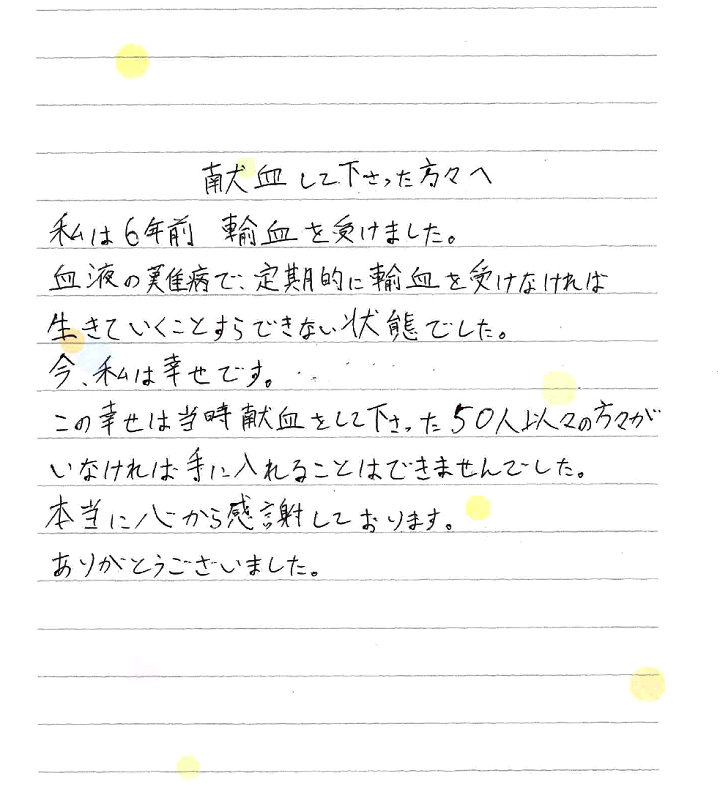 献血して下さった方々へ
私は6年前 輸血を受けました。
血液の難病で、定期的に輸血を受けなければ
生きていくことすらできない状態でした。
今、私は幸せです。
この幸せは当時献血をして下さった50人以上の方々が
いなければ手に入れることはできませんでした。
本当に心から感謝しております。
ありがとうございました。